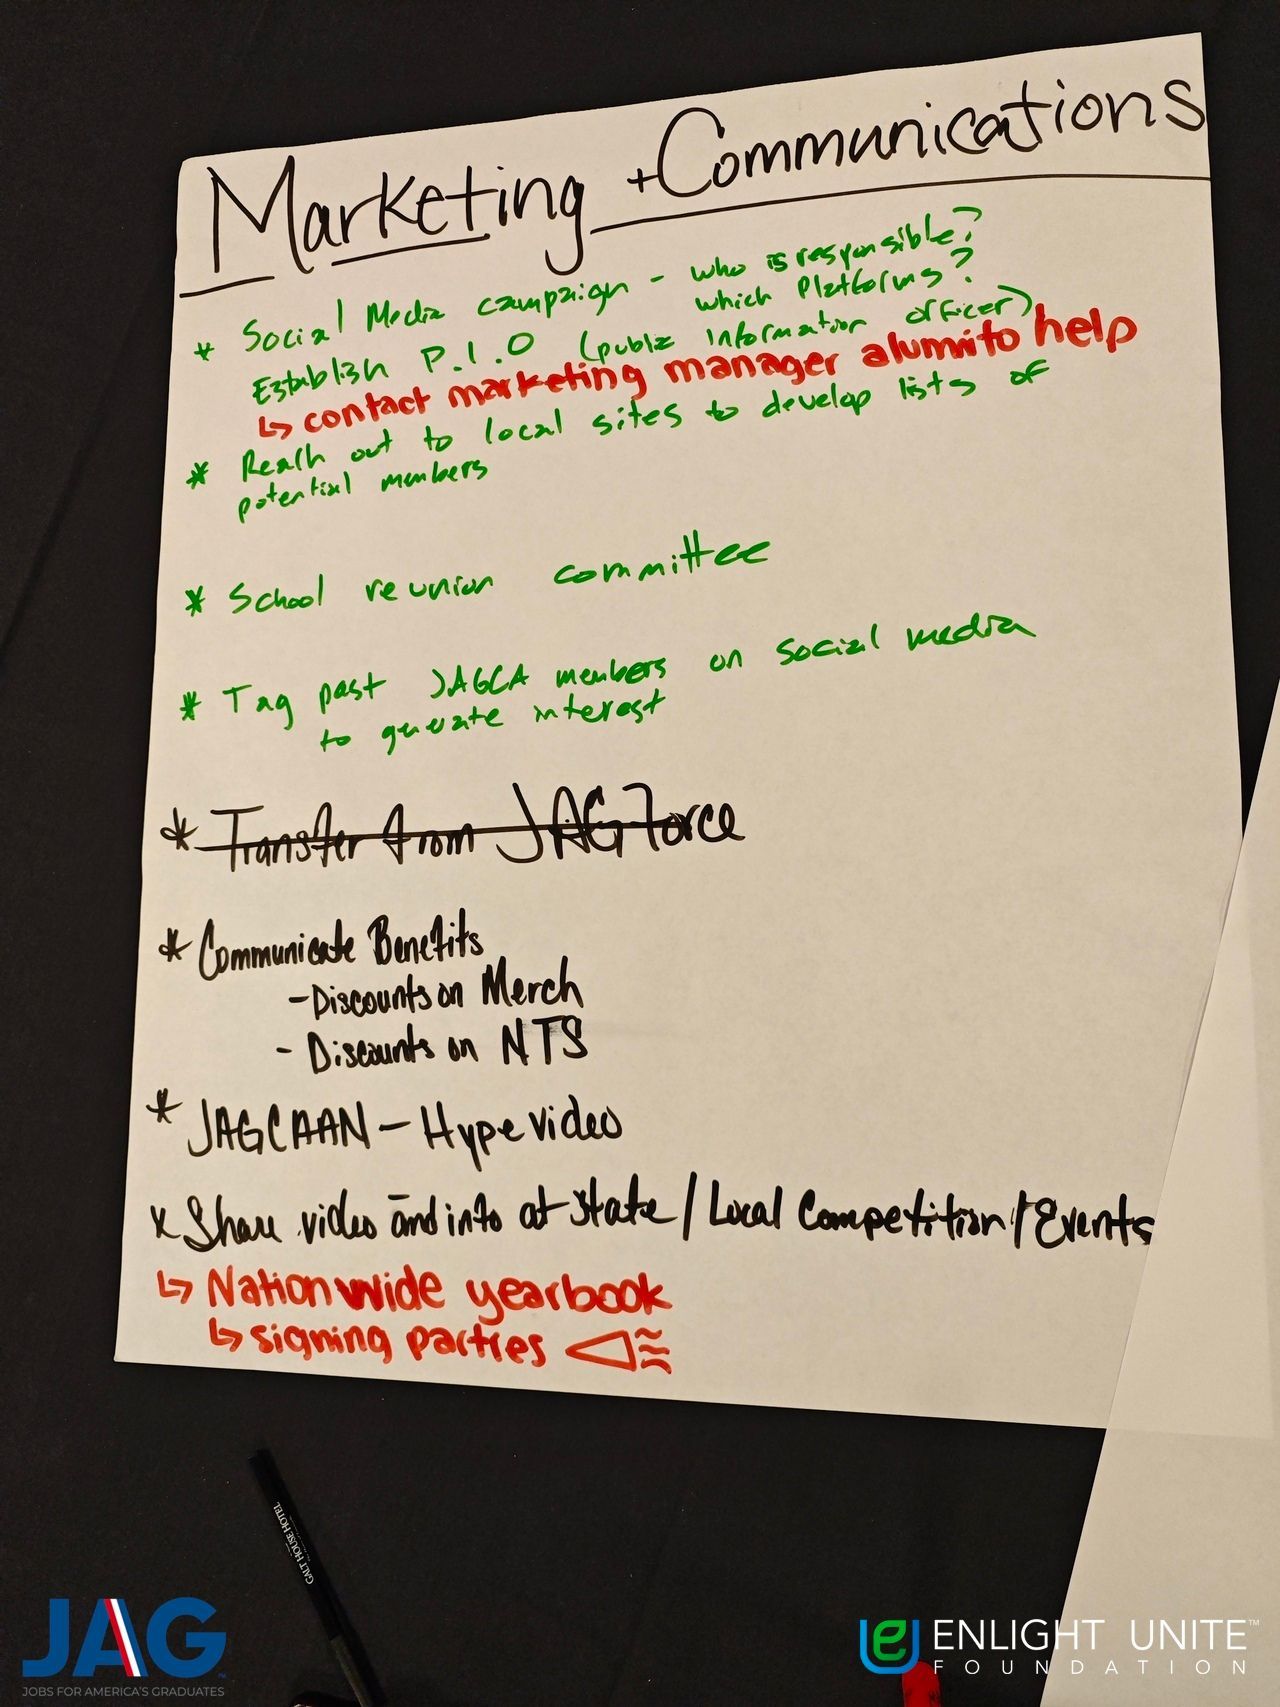 Marketing + Communications
* Social Media campaign - who is responsible?
which Platforms?
Establish P.I.O (public information officer)
↳ contact marketing manager alumni to help
* Reach out to local sites to develop lists of
potential members
* School reunion committee
* Tag past JAGCA members on social media
to generate interest
* Transfer from JAG Force
* Communicate Benefits
- Discounts on Merch
- Discounts on NTS
* JAGCAAN - Hype video
* Share video and info at state / Local Competition / Events
↳ Nationwide yearbook
↳ signing parties
GALT HOUSE HOTEL
JAG
JOBS FOR AMERICA'S GRADUATES
ENLIGHT UNITE™
FOUNDATION